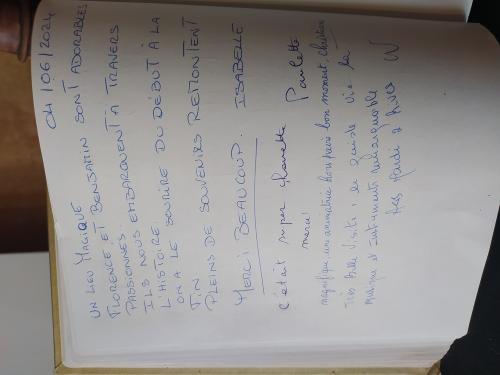 04/06/2024
UN LIEU MAGIQUE
FLORENCE ET BENJAMIN SONT ADORABLES
PASSIONNÉS.
ILS NOUS EMBARQUENT À TRAVERS
L'HISTOIRE
ON A LE SOURIRE DU DÉBUT À LA
FIN
PLEINS DE SOUVENIRS REMONTENT
MERCI BEAUCOUP. ISABELLE
C'était super chouette Paulette
merci
magnifique, une animatrice hors pair bon moment, Christine
Très belle visite, le guide vie la
musique et instruments remarquable